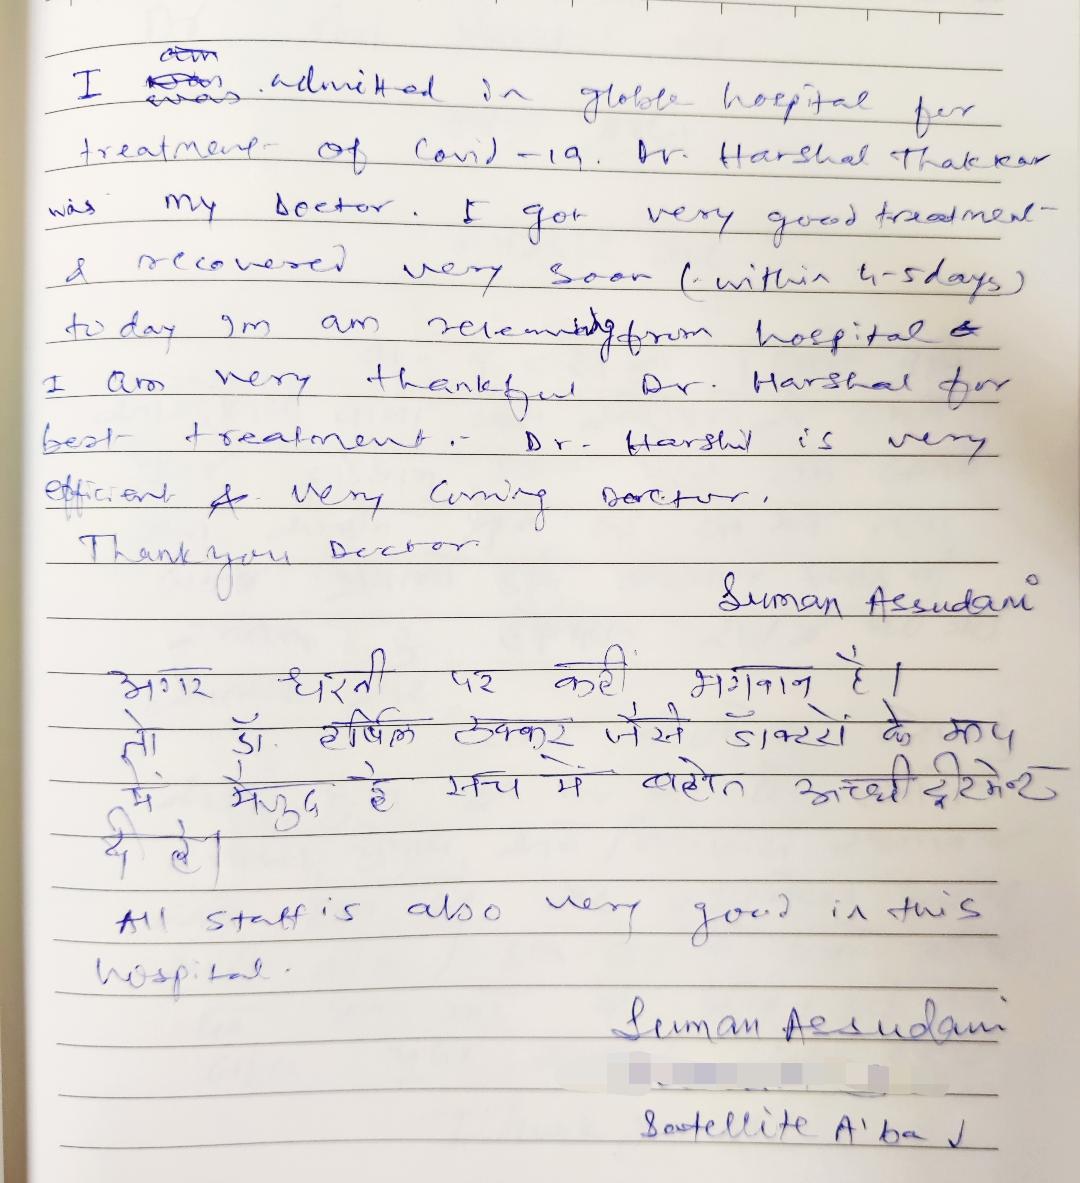 I am admitted in globle hospital for
treatment of Covid-19. Dr. Harshal Thakkar
was my Doctor. I got very good treatment
& recovered very soon (within 4-5days)
today Im am from hospital &
I am very thankful Dr. Harshal for
best treatment.- Dr. Harshil is very
efficient & very Doctor.
Thank you Doctor
Suman Assudani
अगर धरती पर कही भगवान है।
तो डॉ. हर्षिल ठक्कर जैसे डॉक्टरों के रूप
में मैजुद है सच में बहोत अच्छी ट्रीटमेन्ट
दी है।
All staff is also very good in this
hospital.
Suman Assudani
Satellite A'bad